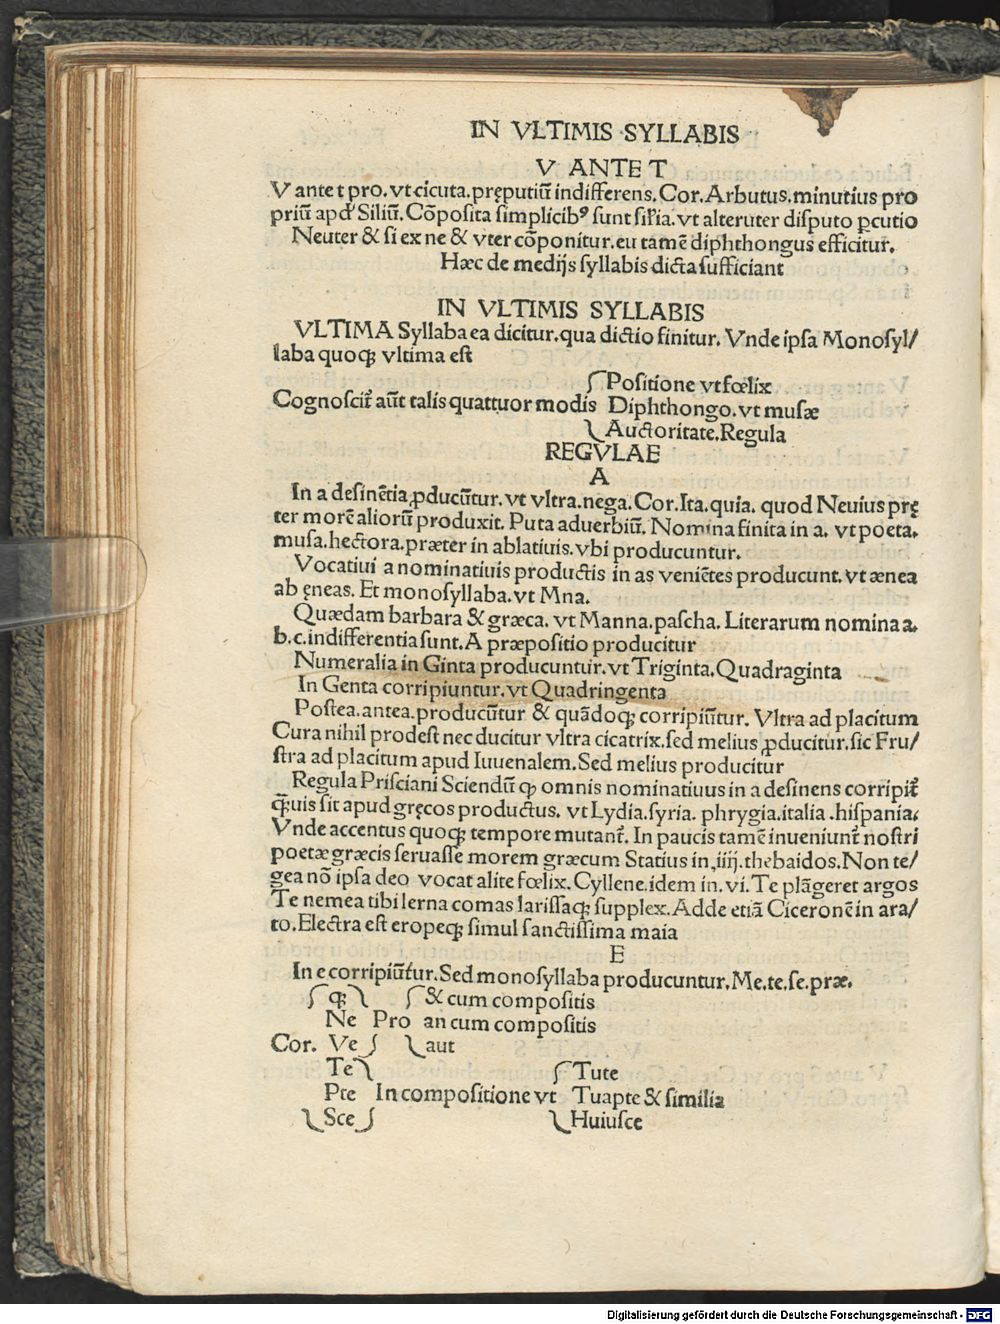 IN VLTIMIS SYLLABIS
V ANTE T
V ante t pro. vt cicuta. pręputiū indifferens. Cor. Arbutus. minutius pro
priū apd' Siliū. Cōposita simplicibꝰ sunt sil'ia. vt alteruter disputo ꝑcutio
Neuter & si ex ne & vter cōponitur. eu tamē diphthongus efficitur.
Hæc de medijs syllabis dicta sufficiant
IN VLTIMIS SYLLABIS
VLTIMA Syllaba ea dicitur. qua dictio finitur. Vnde ipsa Monosyl/
laba quoqꝫ vltima est
Positione vt fœlix
Cognoscit᷑ aūt talis quattuor modis Diphthongo. vt musæ
Auctoritate. Regula
REGVLAE
A
In a desinētia ꝓducūtur. vt vltra. nega. Cor. Ita. quia. quod Neuius prę
ter morē aliorū produxit. Puta aduerbiū. Nomina finita in a. vt poeta.
musa. hectora. præter in ablatiuis. vbi producuntur.
Vocatiui a nominatiuis productis in as veniētes producunt. vt ænea
ab ęneas. Et monosyllaba. vt Mna.
Quædam barbara & græca. vt Manna. pascha. Literarum nomina a.
b. c. indifferentia sunt. A præpositio producitur
Numeralia in Ginta producuntur. vt Triginta. Quadraginta
In Genta corripiuntur. vt Quadringenta
Postea. antea. producūtur & quādoqꝫ corripiūtur. Vltra ad placitum
Cura nihil prodest nec ducitur vltra cicatrix. sed melius ꝓducitur. sic Fru/
stra ad placitum apud Iuuenalem. Sed melius producitur
Regula Prisciani Sciendū qꝫ omnis nominatiuus in a desinens corripit᷑
qꝫuis sit apud gręcos productus. vt Lydia. syria. phrygia. italia. hispania.
Vnde accentus quoqꝫ tempore mutant᷑. In paucis tamē inueniunt᷑ nostri
poetæ græcis seruasse morem græcum Statius in .iiij. thebaidos. Non te/
gea nō ipsa deo vocat alite fœlix. Cyllene. idem in. vi. Te plāgeret argos
Te nemea tibi lerna comas larissaqꝫ supplex. Adde etiā Ciceronē in ara/
to. Electra est eropeqꝫ simul sanctissima maia
E
In e corripiūtur. Sed monosyllaba producuntur. Me. te. se. præ.
qꝫ & cum compositis
Ne Pro an cum compositis
Cor. Ve aut
Te Tute
Pte In compositione vt Tuapte & similia
Sce Huiusce
Digitalisierung gefördert durch die Deutsche Forschungsgemeinschaft - DFG